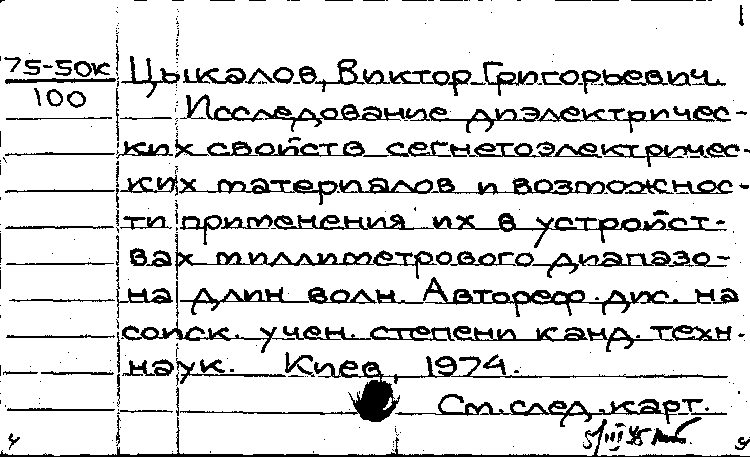 75-50к
100
Цыкалов, Виктор Григорьевич.
Исследование диэлектричес-
ких свойств сегнетоэлектричес-
ких материалов и возможнос-
ти применения их в устройст-
вах миллиметрового диапазо-
на длин волн. Автореф. дис. на
соиск. учен. степени канд. техн.
наук. Киев, 1974.
См. след. карт.